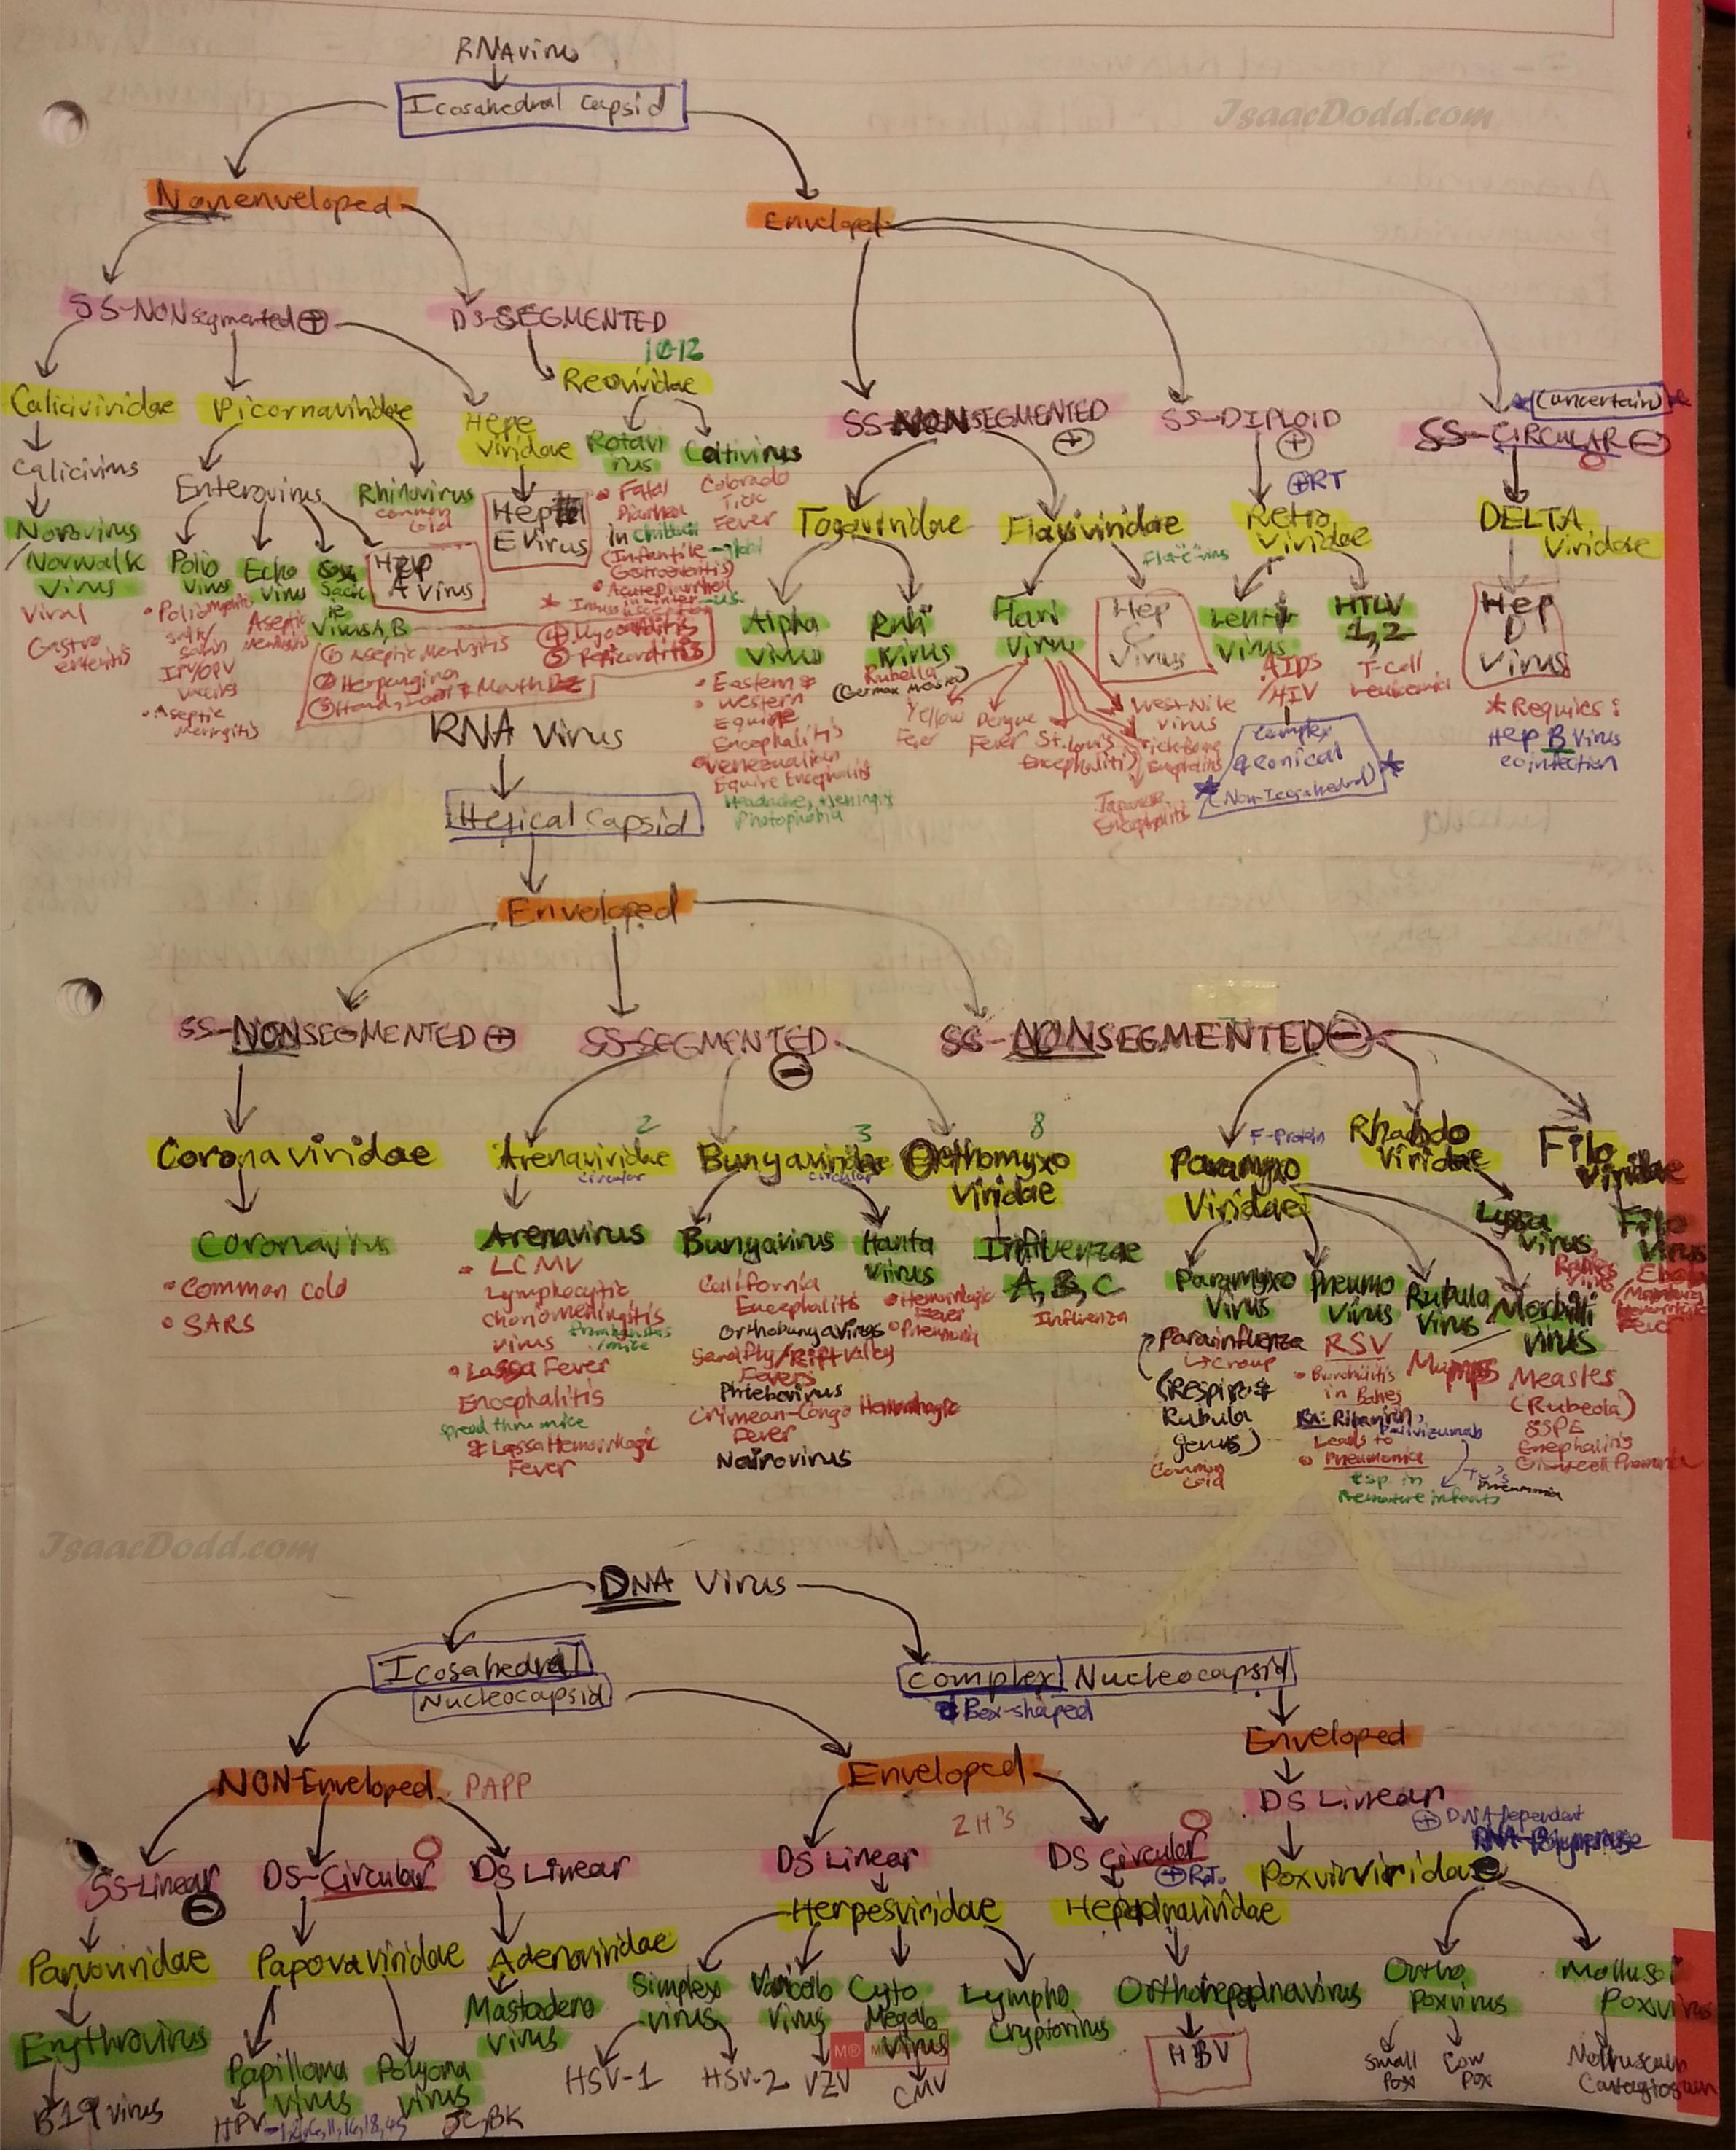 RNAvirus
Icosahedral Capsid
IsaacDodd.com
Nonenveloped
Enveloped
SS-NONsegmented ⊕
DS-SEGMENTED
10-12
Caliciviridae
Picornaviridae
Hepe
Viridae
Reoviridae
SS-NONSEGMENTED
⊕
SS-DIPLOID
⊕
⊕RT
(uncertain)
SS-CIRCULAR ⊖
Calicivirus
Norovirus
/Norwalk
Virus
Viral
Gastro
enteritis
Enterovirus
Rhinovirus
common
cold
Polio
Virus
Echo
Virus
Virus A,B
Hep
A Virus
Salk/
Sabin
IPV/OPV
vaccines
• Aseptic
Meningitis
Aseptic
Meningitis
① Aseptic Meningitis
② Herpangina
③ Hand, Foot & Mouth DZ
④ Myocarditis
⑤ Pericarditis
Hep
E Virus
Rotavi
rus
• Fatal
Diarrhea
in children
(Infantile - global
Gastroenteritis)
• Acute Diarrhea
Coltivirus
Colorado
Tick
Fever
Togaviridae
Alpha
Virus
• Eastern &
• Western
Equine
Encephalitis
• Venezualian
Equine Encephalitis
Headache, Meningitis
Photophobia
Rubi
Virus
Rubella
(German Measles)
Flaviviridae
Flavi
Virus
Yellow
Fever
Dengue
Fever
St. Louis
Encephalitis
West-Nile
Virus
Japanese
Encephalitis
Hep
C
Virus
Retro
Viridae
Lenti
Virus
AIDS
/HIV
Complex
& Conical
(Non-Icosahedral)
HTLV
1,2
T-Cell
Leukemia
DELTA
Viridae
Hep
D
Virus
* Requires:
Hep B Virus
coinfection
RNA Virus
Helical Capsid
Enveloped
SS-NONSEGMENTED ⊕
SS-SEGMENTED
⊖
SS-NONSEGMENTED ⊖
Coronaviridae
Coronavirus
• Common cold
• SARS
2
Arenaviridae
circular
Arenavirus
• LCMV
Lymphocytic
choriomeningitis
virus
• Lassa Fever
Encephalitis
spread thru mice
& Lassa Hemorrhagic
Fever
3
Bunyaviridae
circular
Bunyavirus
California
Encephalitis
Orthobunyavirus
Sandfly/Rift Valley
Fevers
Phlebovirus
Crimean-Congo Hemorrhagic
Fever
Nairovirus
Hanta
Virus
• Hemorrhagic
Fever
• Pneumonia
8
Orthomyxo
Viridae
Influenzae
A, B, C
Influenza
F-Protein
Paramyxo
Viridae
Paramyxo
Virus
Parainfluenza
↳ Croup
(Respiro &
Rubula
genus)
Common
cold
Pneumo
Virus
RSV
• Bronchiolitis
in Babies
Rx: Ribavirin,
Palivizumab
Leads to
Pneumonia
esp. in
Premature infants
Tx's
Pneumonia
Rubula
Virus
Mumps
Morbilli
Virus
Measles
(Rubeola)
SSPE
Encephalitis
Giant cell Pneumonia
Rhabdo
Viridae
Lyssa
Virus
Rabies
Virus
Filo
Viridae
Filo
Virus
Ebola
/Marburg
Hemorrhagic
Fever
IsaacDodd.com
DNA Virus
Icosahedral
Nucleocapsid
Complex Nucleocapsid
Box-shaped
NON-Enveloped
PAPP
Enveloped
2 H's
Enveloped
DS Linear
⊕ DNA-Dependent
RNA-Polymerase
SS-Linear
⊖
DS-Circular
DS Linear
DS Linear
DS Circular
⊕RT.
Poxvirviridae
Parvoviridae
Papovaviridae
Adenoviridae
Herpesviridae
Hepadnaviridae
Erythrovirus
B19 virus
Papilloma
Virus
HPV-1,2,6,11,16,18,45
Polyoma
Virus
JC, BK
Mastadeno
Virus
Simplex
virus
HSV-1
HSV-2
Varicello
Virus
VZV
Cyto
Megalo
Virus
CMV
Lympho
Cryptovirus
Orthohepadnavirus
HBV
Ortho
Poxvirus
Small
Pox
Cow
Pox
Mollusci
Poxvirus
Molluscum
Contagiosum